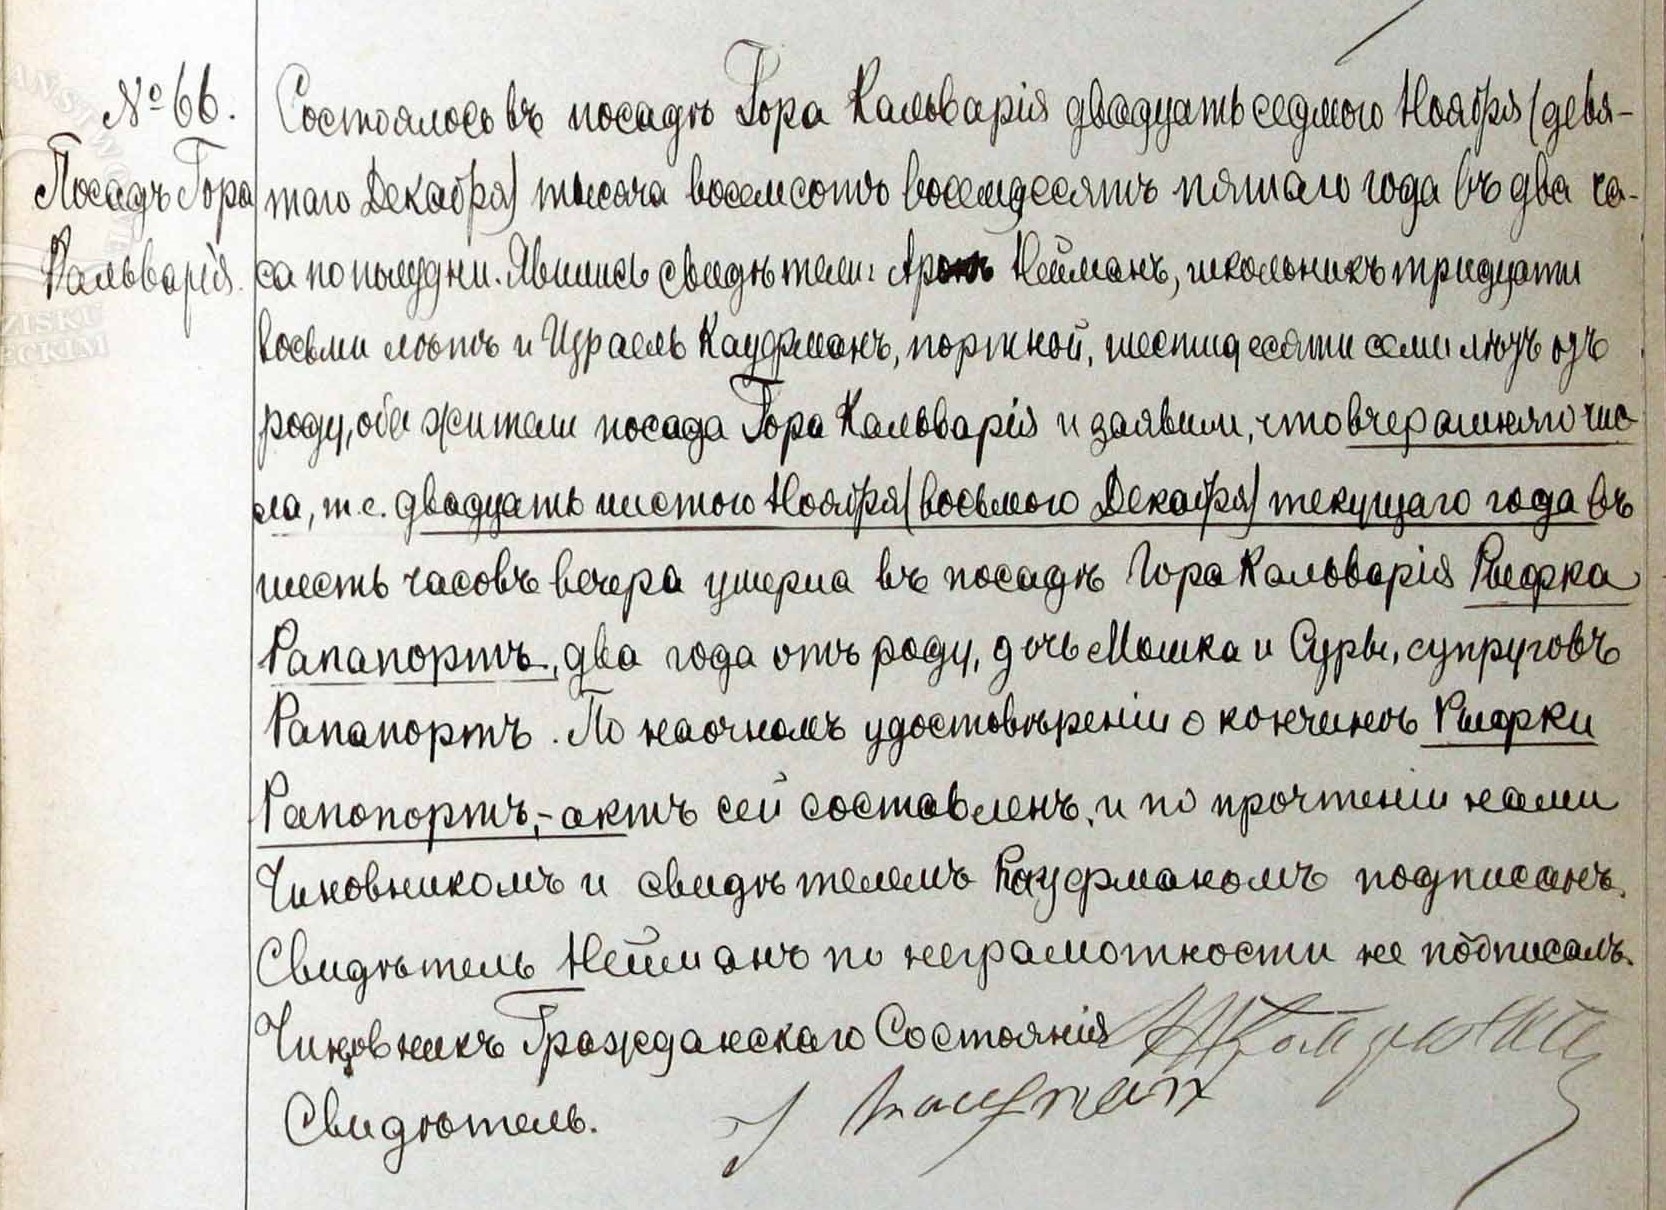 № 66.
Посадъ Гора
Кальварія.
Состоялось въ посадѣ Гора Кальварія двадцать седмого Ноября (девя-
таго Декабря) тысяча восемсотъ восемдесятъ пятаго года въ два ча-
са пополудни. Явились свидѣтели: Аронъ Нейманъ, школьникъ тридцати
восьми лѣтъ и Израель Кауфманъ, портной, шестидесяти семи лѣтъ отъ
роду, оба жители посада Гора Кальварія и заявили, что вчерашняго чис-
ла, т. е. двадцать шестого Ноября (восьмого Декабря) текущаго года въ
шесть часовъ вечера умерла въ посадѣ Гора Кальварія Рыфка
Рапапортъ, два года отъ роду, дочь Мошка и Суры, супруговъ
Рапапортъ. По наочномъ удостовѣреніи о кончинѣ Рыфки
Рапопортъ,- актъ сей составленъ, и по прочтеніи нами
Чиновникомъ и свидѣтелемъ Кауфманомъ подписанъ.
Свидѣтель Нейманъ по неграмотности не подписалъ.
Чиновникъ Гражданскаго Состоянія
Свидѣтель. J Kaufman
PAŃSTWO
ZISKU
ECKIM